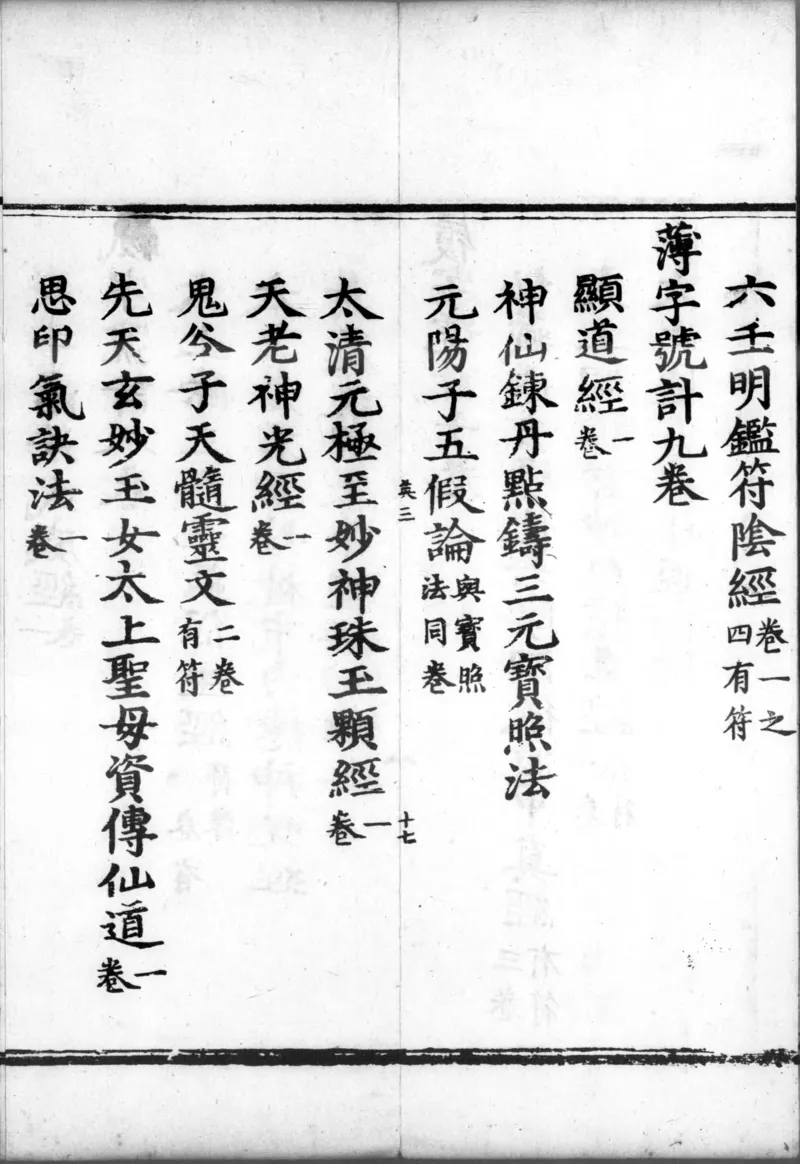 六壬明鑑符陰經卷一之四有符
薄字號計九卷
顯道經一卷
神仙鍊丹點鑄三元寶照法
元陽子五假論與寶照法同卷
英三
十七
太清元極至妙神珠玉顆經一卷
天老神光經一卷
鬼谷子天髓靈文二卷有符
先天玄妙玉女太上聖母資傳仙道一卷
思印氣訣法一卷